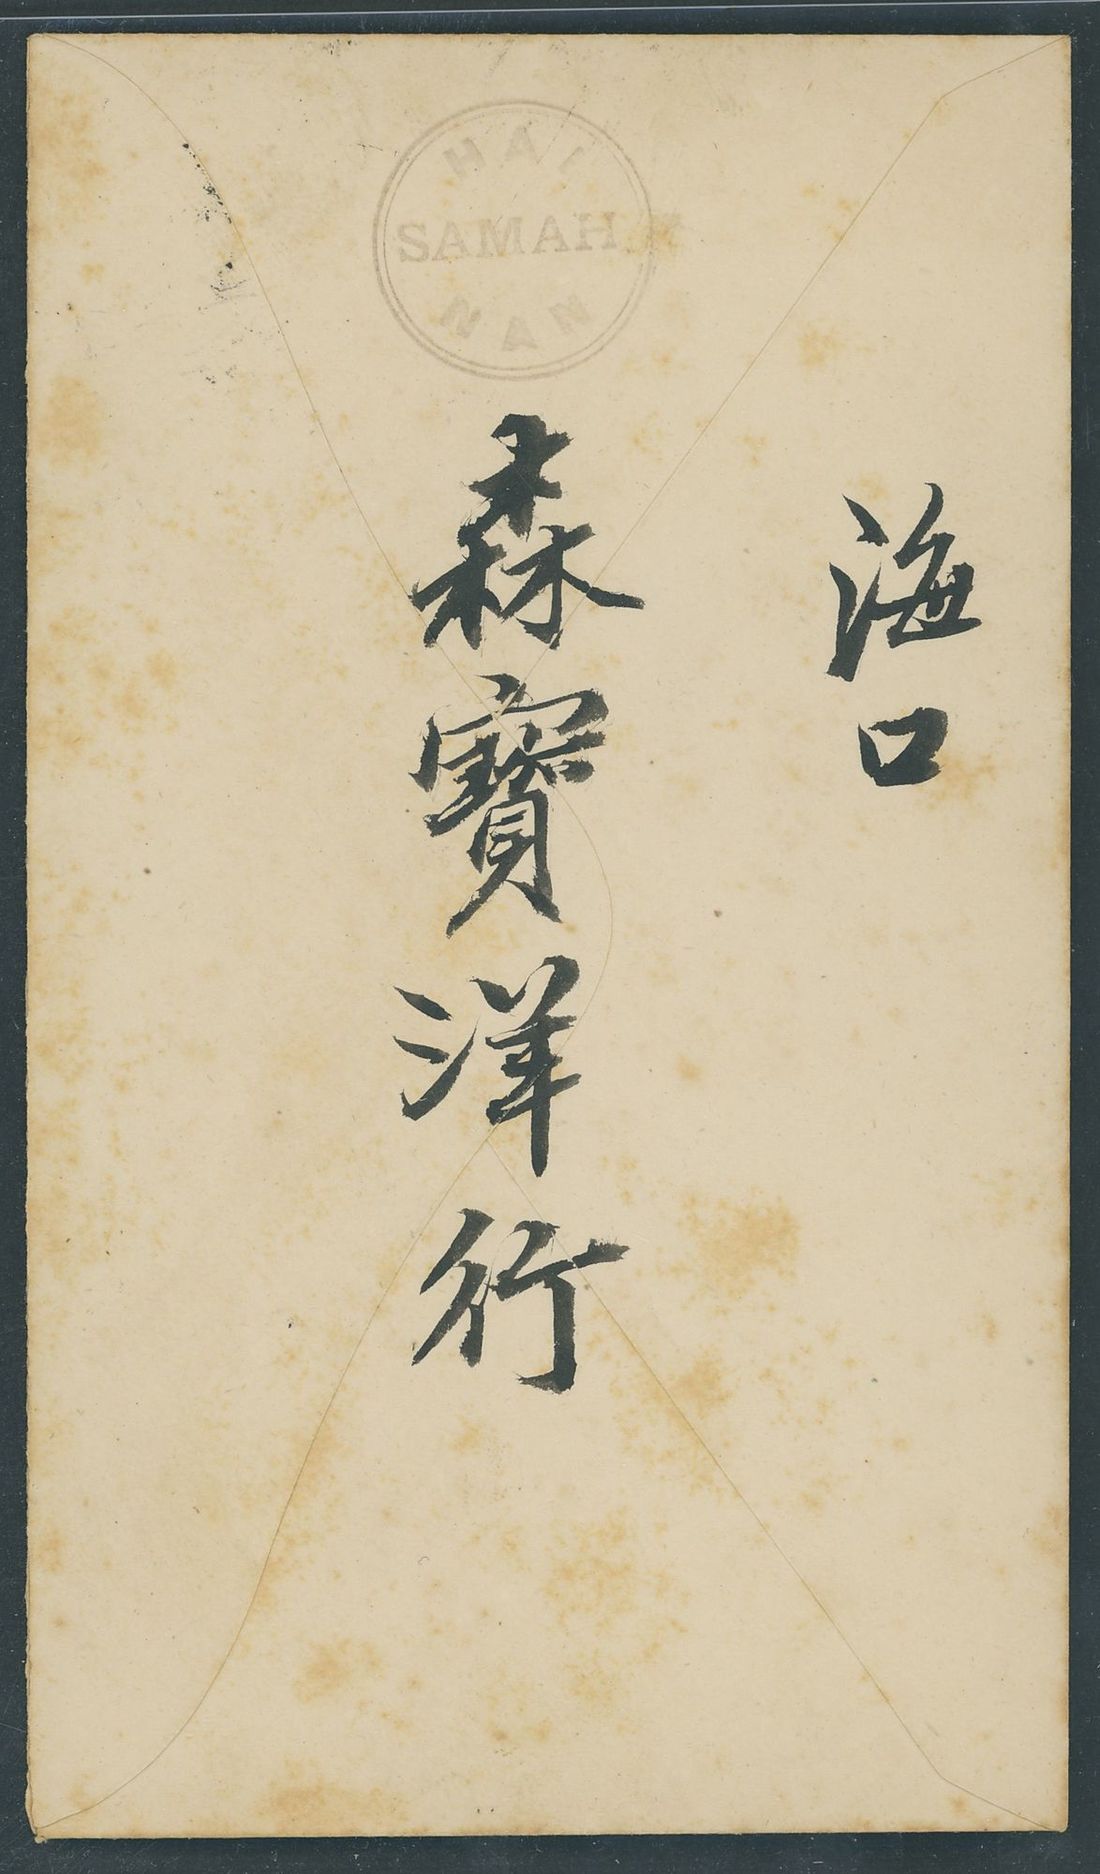 HAI
SAMAH
NAN
海口
森寶洋行